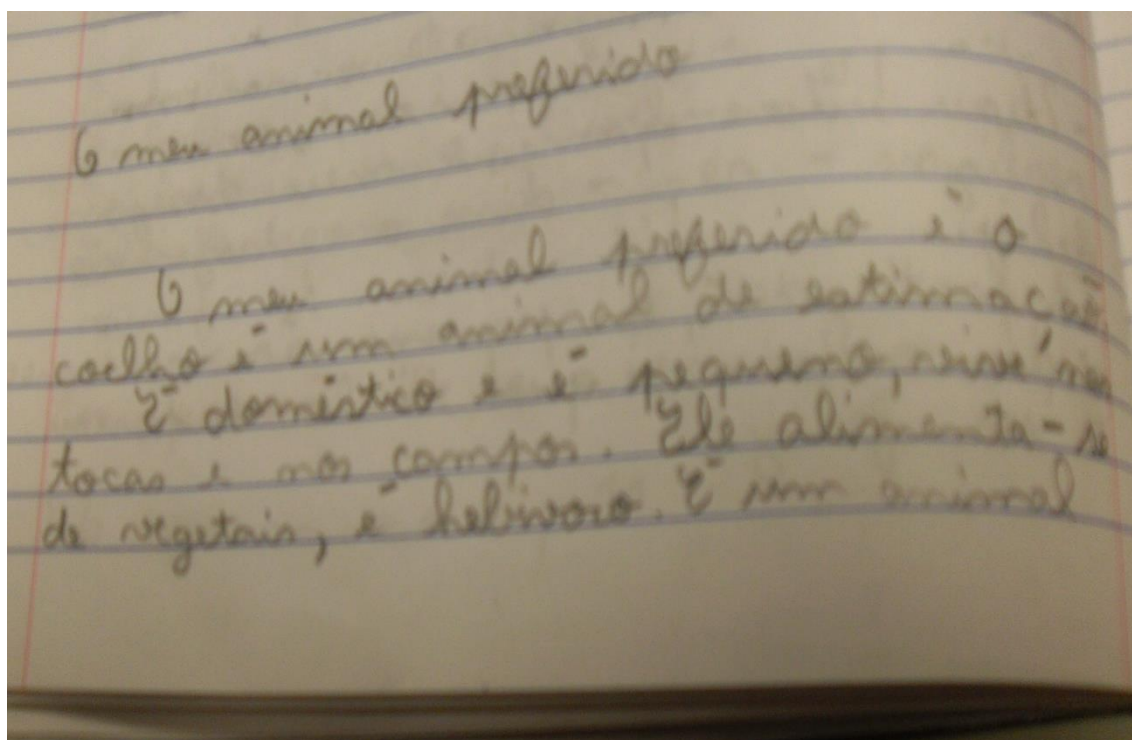 O meu animal preferido
O meu animal preferido é o
coelho é um animal de estimação
É doméstico e é pequeno, vive nas
tocas e nos campos. Ele alimenta-se
de vegetais, é helivoro. É um animal